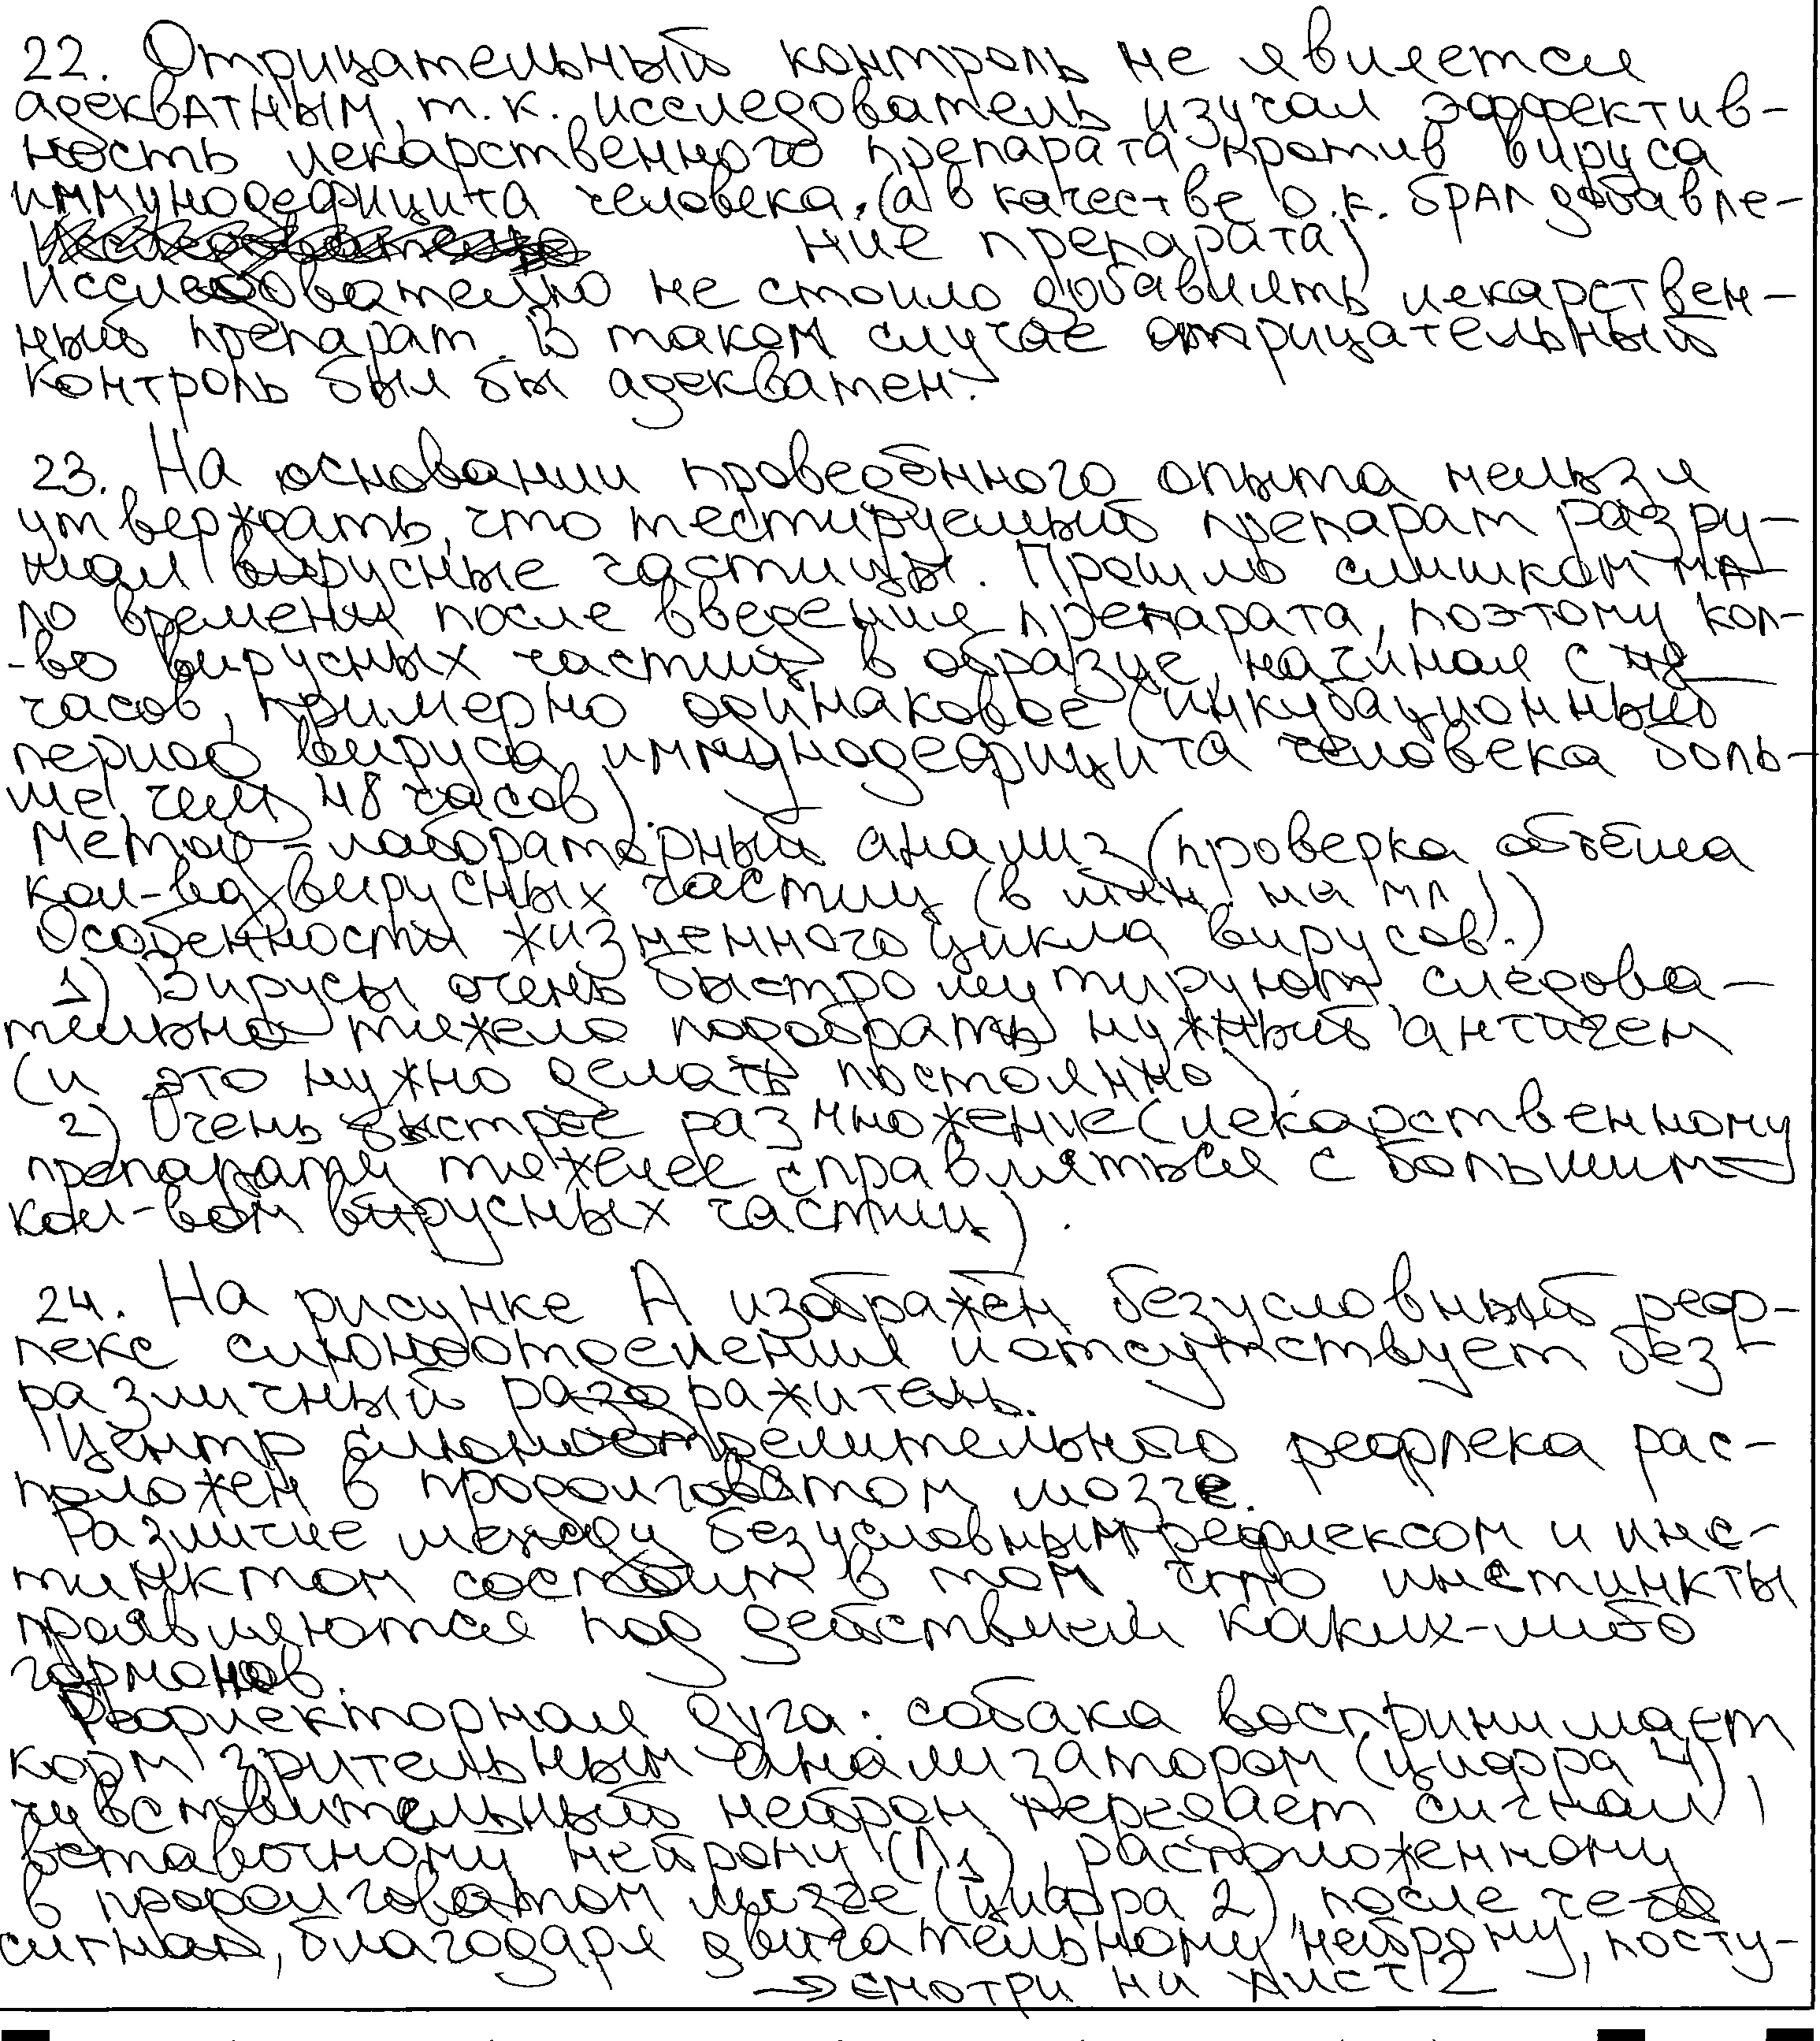 22. Отрицательный контроль не является
адекватным, т.к. исследователь изучал эффектив-
ность лекарственного препарата против вируса
иммунодефицита человека. (а в качестве о.к. брал добавле-
ние препарата)
Исследователю не стоило добавлять лекарствен-
ный препарат. В таком случае отрицательный
контроль был бы адекватен.
23. На основании проведённого опыта нельзя
утверждать, что тестируемый препарат разру-
шал вирусные частицы. Прошло слишком ма-
ло времени после введения препарата, поэтому кол-
-во вирусных частиц в образце, начиная с 48
часов, примерно одинаковое (инкубационный
период вируса иммунодефицита человека боль-
ше, чем 48 часов).
Метод - лабораторный анализ (проверка объёма
кол-ва вирусных частиц (в млн. на мл))
Особенности жизненного цикла вирусов:
1) Вирусы очень быстро мутируют, следова-
тельно тяжело подобрать нужный антиген
(и это нужно делать постоянно).
2) Очень быстрее размножение (лекарственному
препарату тяжелее справляться с большим
кол-вом вирусных частиц).
24. На рисунке А изображён безусловный реф-
лекс слюноотделения и отсутствует без-
различный раздражитель.
Центр слюноотделительного рефлекса рас-
положен в продолговатом мозге.
Различие между безусловным рефлексом и инс-
тинктом состоит в том, что инстинкты
проявляются под действием каких-либо
гормонов.
Рефлекторная дуга: собака воспринимает
корм зрительным анализатором (цифра 4),
чувствительный нейрон передает сигнал
вставочному нейрону (П1), расположенному
в продолговатом мозге (цифра 2), после чего
сигнал, благодаря двигательному нейрону, посту-
→ смотри ни лист 2